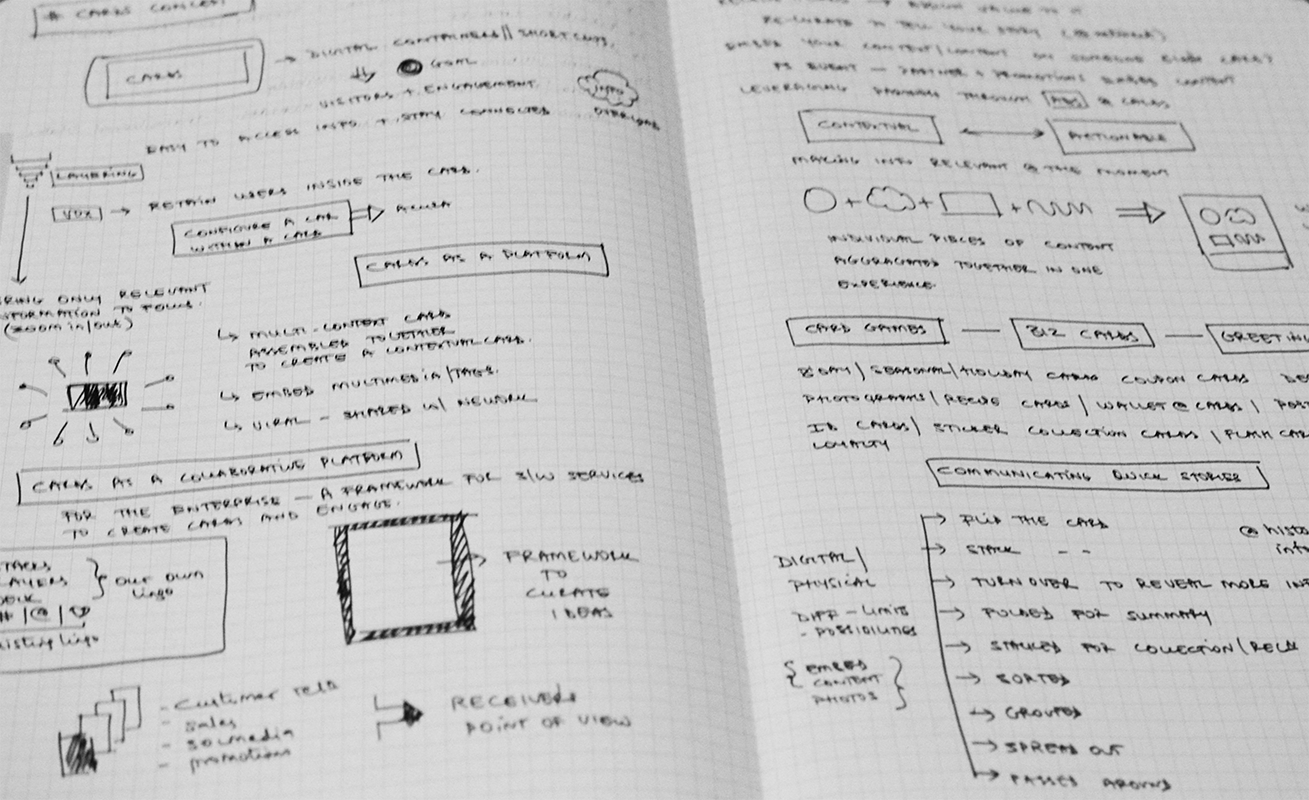 # CARDS CONCEPT
CARDS
→ DIGITAL CONTAINERS // SHORTCUTS.
GOAL
VISITORS + ENGAGEMENT.
INFO
OVERLOAD
EASY TO ACCESS INFO + STAY CONNECTED
LAYERING
VOX → RETAIN USERS INSIDE THE CARD.
CONFIGURE A CAR
WITHIN A CARD
ACURA
CARDS AS A PLATFORM
BRING ONLY RELEVANT
INFORMATION TO FOCUS.
(ZOOM IN/OUT)
↳ MULTI-CONTEXT CARDS
ASSEMBLED TOGETHER
TO CREATE A CONTEXTUAL CARD.
↳ EMBED MULTIMEDIA/TAGS.
↳ VIRAL - SHARED W/ NEWORK
CARDS AS A COLLABORATIVE PLATFORM
FOR THE ENTERPRISE - A FRAMEWORK FOR S/W SERVICES
TO CREATE CARDS AND ENGAGE.
STACKS
LAYERS
DECK
# | @ |
} our own
lingo
existing lingo
→ FRAMEWORK
TO
CURATE
IDEAS
- customer rels
- sales
- socmedia
- promotions
RECEIVERS
POINT OF VIEW
RE-CURATE TO TELL YOUR STORY
EMBED YOUR CONTENT/CONTENT ON SOMEONE ELSE'S CARD?
EVENT - PARTNER + PROMOTIONS BASED CONTENT
LEVERAGING THROUGH ADS @ CARDS
CONTEXTUAL ↔ ACTIONABLE
MAKING INFO RELEVANT @ THE MOMENT
+ + +
INDIVIDUAL PIECES OF CONTENT
AGGRAGATED TOGETHER IN ONE
EXPERIENCE.
CARD GAMES — BIZ CARDS — GREETING
BDAY/SEASONAL/HOLIDAY CARDS COUPON CARDS
PHOTOGRAPHS/RECIPE CARDS/WALLET @ CARDS/
ID CARDS/ STICKER COLLECTION CARDS / FLASH CAR
LOYALTY
COMMUNICATING QUICK STORIES
DIGITAL/
PHYSICAL
DIFF - LIMITS
- POSSIBILITIES
{ EMBED
CONTENT
PHOTOS }
→ FLIP THE CARD
→ STACK - -
→ TURN OVER TO REVEAL MORE INF
→ FOLDED FOR SUMMARY
→ STACKED FOR COLLECTION/
→ SORTED
→ GROUPED
→ SPREAD OUT
→ PASSED AROUND
@ histo